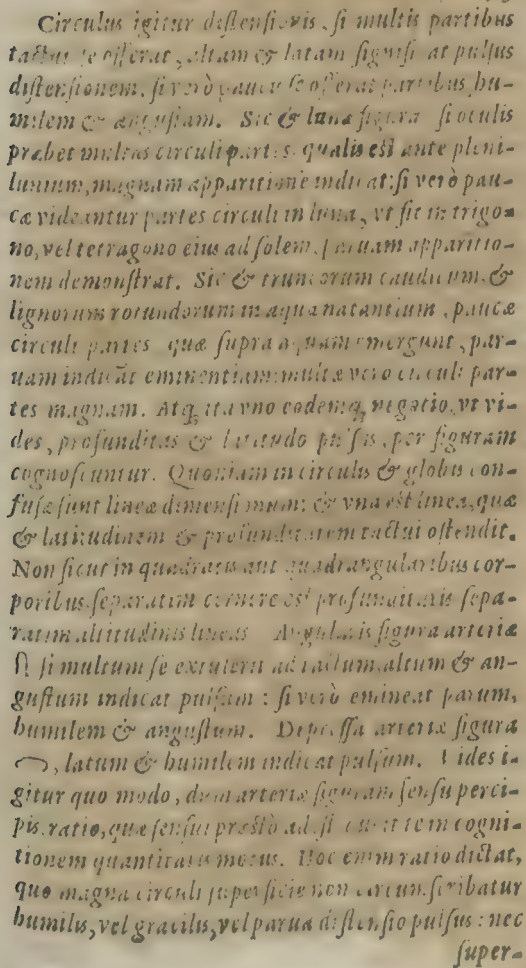 Circulus igitur distensionis, si multis partibus
tactui se offerat, altam & latam signifi at pulsus
distensionem, si verò paucis se offerat partibus, hu-
milem & angustam. Sic & lunæ figura si oculis
præbet multas circuli partes, qualis est ante pleni-
lunium, magnam apparitionē indicat: si verò pau-
cæ videantur partes circuli in luna, vt fit in trigo-
no, vel tetragono eius ad solem, paruam apparitio-
nem demonstrat. Sic & truncorum &
lignorum rotundorum in aqua natantium, paucæ
circuli partes quæ supra aquam emergunt, par-
uam indicāt eminentiam: multæ vero circuli par-
tes magnam. Atq, ita vno eodemq, negotio, vt vi-
des, profunditas & latitudo pulsus, per figuram
cognoscuntur. Quoniam in circulis & globis con-
fusæ sunt lineæ dimensionum: & vna est linea, quæ
& latitudinem & profunditatem tactui ostendit.
Non sicut in quadratis aut quadrangularibus cor-
poribus, separatim cernere est profunditatis sepa-
ratim altitudinis lineas. Angularis figura arteriæ
si multum se extulerit ad tactum, altum & an-
gustum indicat pulsum: si verò emineat parum,
humilem & angustum. Depressa arteriæ figura
, latum & humilem indicat pulsum. Vides i-
gitur quo modo, dum arteriæ figuram sensu perci-
pis, ratio, quæ sensui præstò adest cogni-
tionem quantitatis motus. Hoc enim ratio dictat,
quo magna circuli superficie non circunscribatur
humilis, vel gracilis, vel parua distensio pulsus: nec
super-